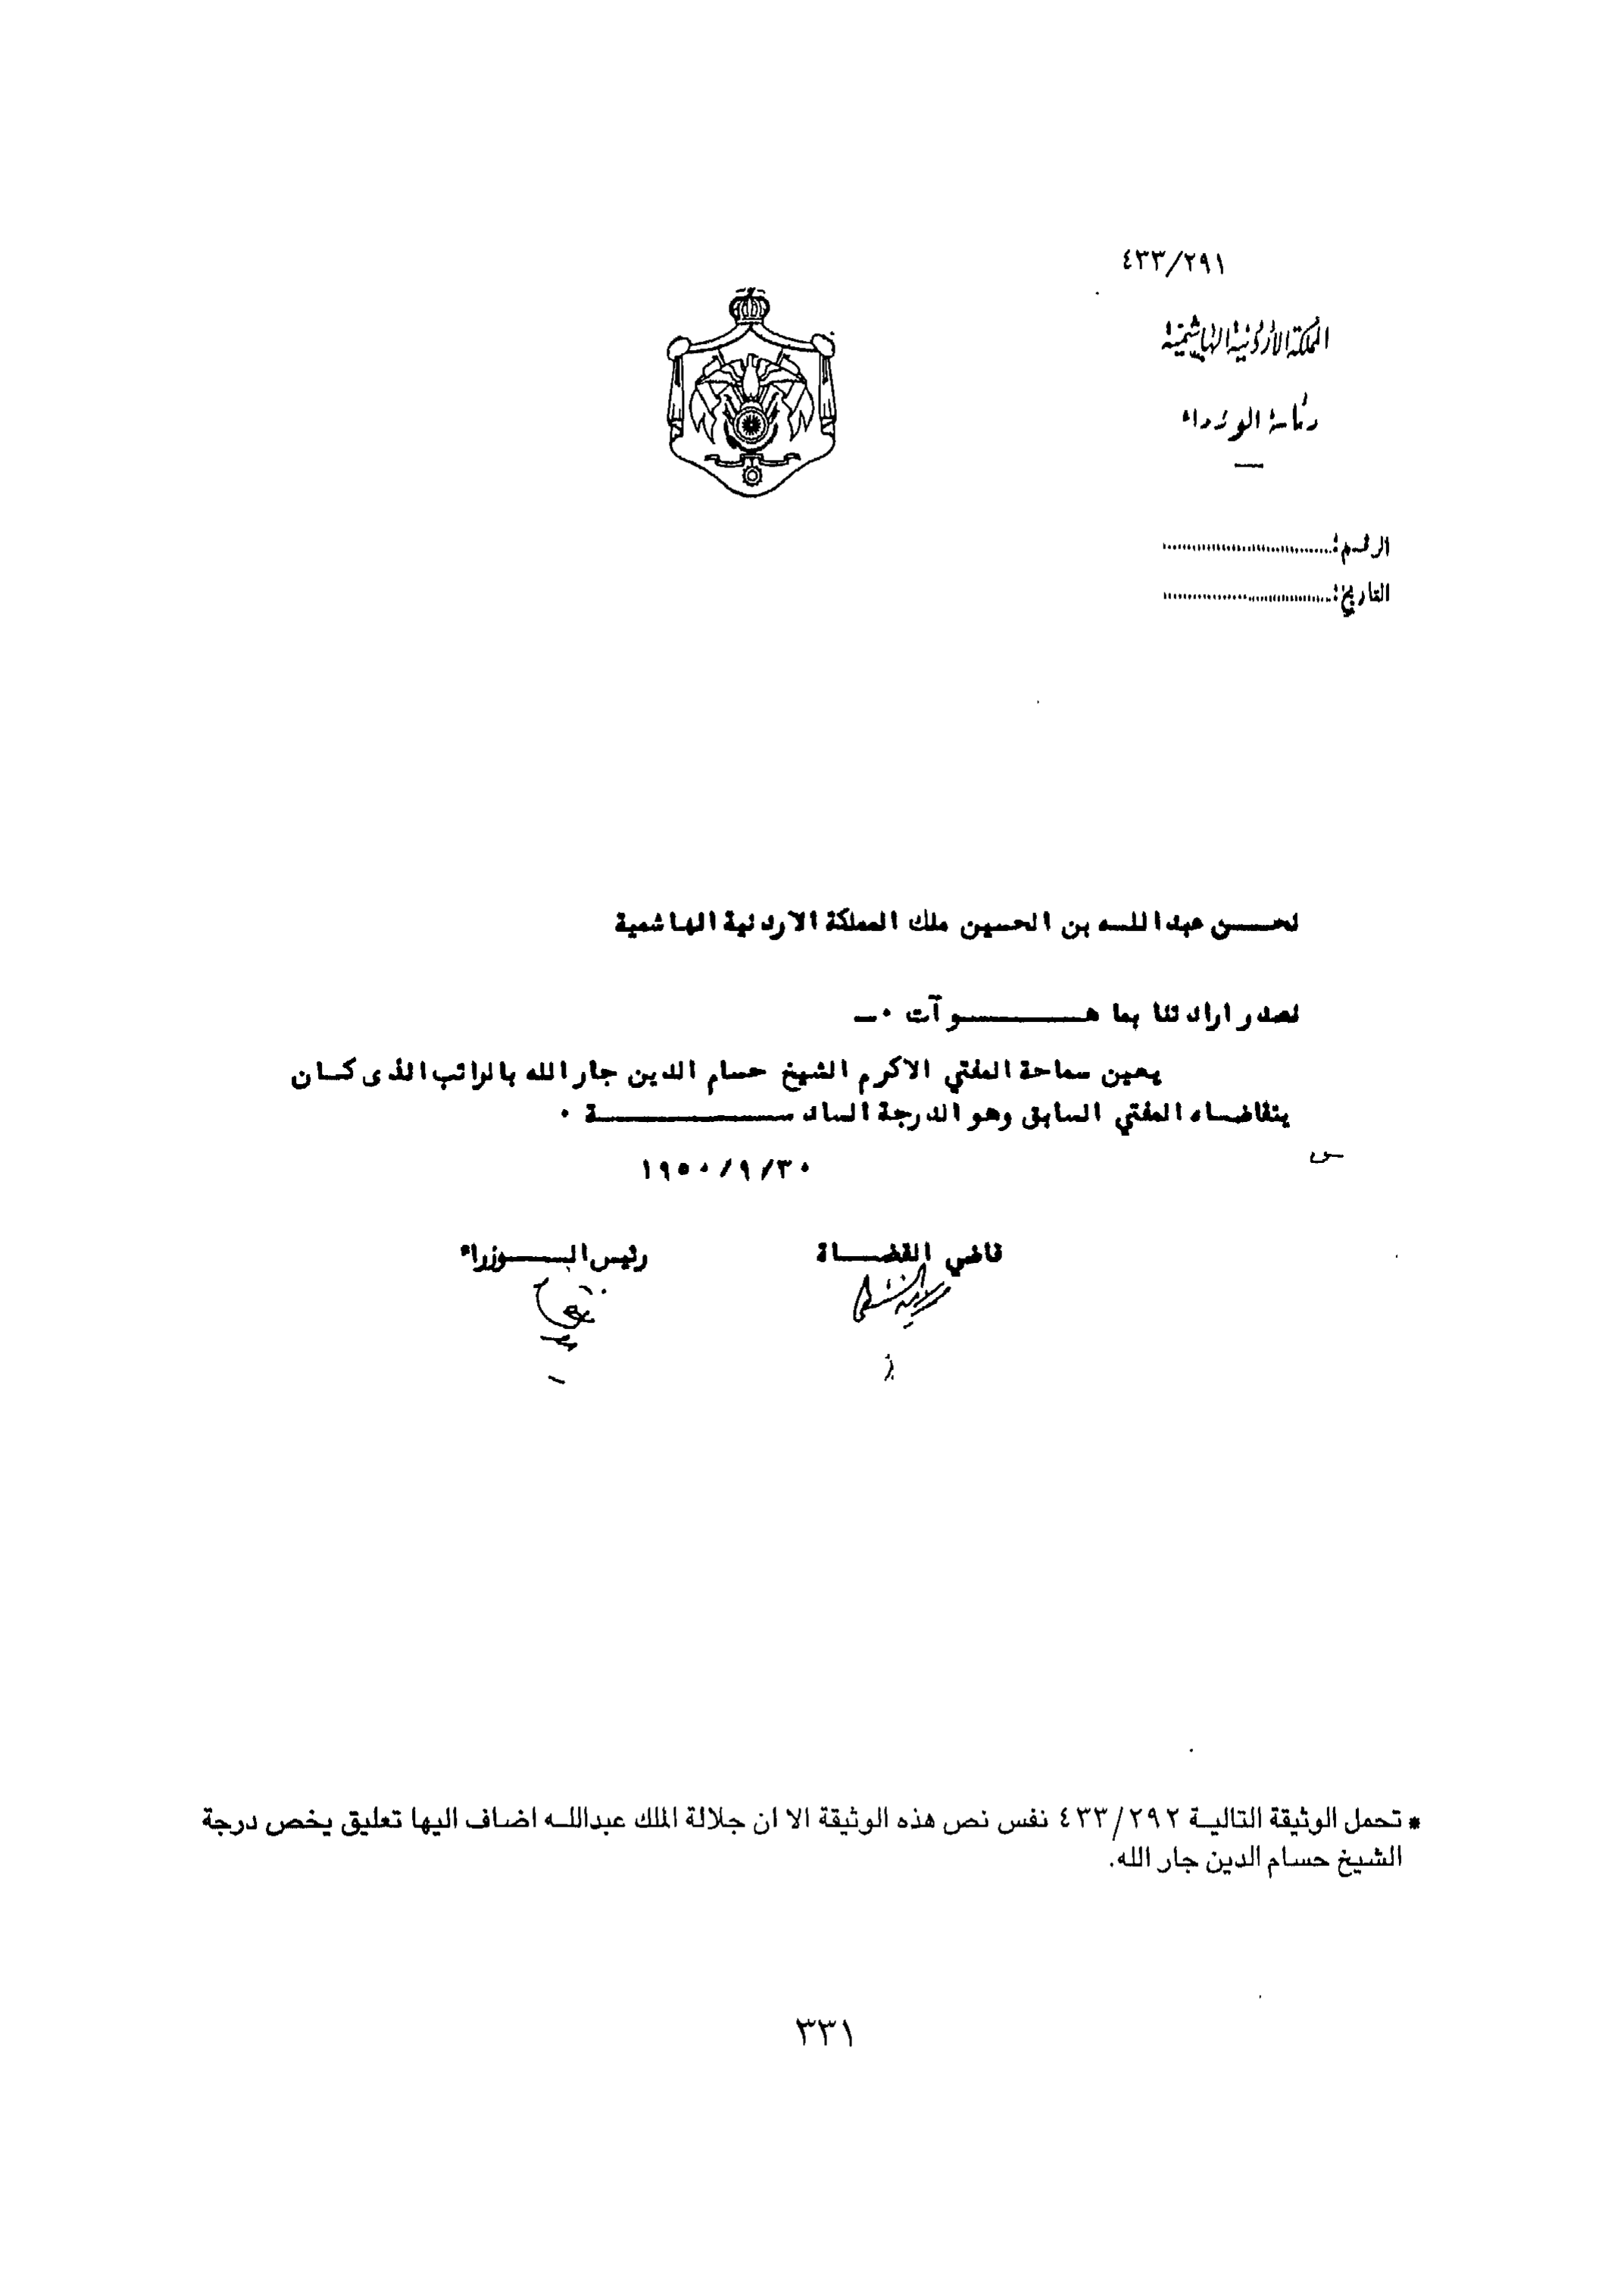 ٤٣٣/٢٩١
المملكة الأردنية الهاشمية
رئاسة الوزراء
الرقم:
التاريخ:
نحـــن عبدالله بن الحسين ملك المملكة الاردنية الهاشمية
نصدر ارادتنا بما هـــــــو آت ٠ــ
يعين سماحة المفتي الاكرم الشيخ حسام الدين جارالله بالراتب الذى كــان
يتقاضــاه المفتي السابق وهو الدرجة السادســــــــة ٠
١٩٥٠/٩/٣٠
قاضي القضــــاة
رئيس الــــوزراء
* تحمل الوثيقة التاليــة ٤٣٣/٢٩٢ نفس نص هذه الوثيقة الا ان جلالة الملك عبداللــه اضاف اليها تعليق يخص درجة
الشيخ حسام الدين جار الله.
٣٣١